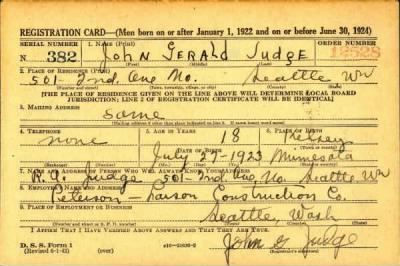 REGISTRATION CARD—(Men born on or after January 1, 1922 and on or before June 30, 1924)
SERIAL NUMBER 1. NAME (Print) ORDER NUMBER
N 382 JOHN GERALD JUDGE 12528
(First) (Middle) (Last)
2. PLACE OF RESIDENCE (Print)
501- 2nd. Ave No. Seattle Wn
(Number and street) (Town, township, village, or city) (County) (State)
[THE PLACE OF RESIDENCE GIVEN ON THE LINE ABOVE WILL DETERMINE LOCAL BOARD
JURISDICTION; LINE 2 OF REGISTRATION CERTIFICATE WILL BE IDENTICAL]
3. MAILING ADDRESS
Same
(Mailing address if other than place indicated on line 2. If same insert word same)
4. TELEPHONE 5. AGE IN YEARS 6. PLACE OF BIRTH
none 18 Kelsey
DATE OF BIRTH
July 27-1923 Minnesota
7. NAME AND ADDRESS OF PERSON WHO WILL ALWAYS KNOW YOUR ADDRESS
Judge 501- 2nd. Ave, No Seattle, Wn
8. EMPLOYER'S NAME AND ADDRESS
Peterson- Larson Construction Co.
9. PLACE OF EMPLOYMENT OR BUSINESS
Seattle, Wash
(Number and street or R. F. D. number) (Town) (County) (State)
I AFFIRM THAT I HAVE VERIFIED ABOVE ANSWERS AND THAT THEY ARE TRUE.
D. S. S. Form 1
(Revised 6-1-42) (over) John G Judge